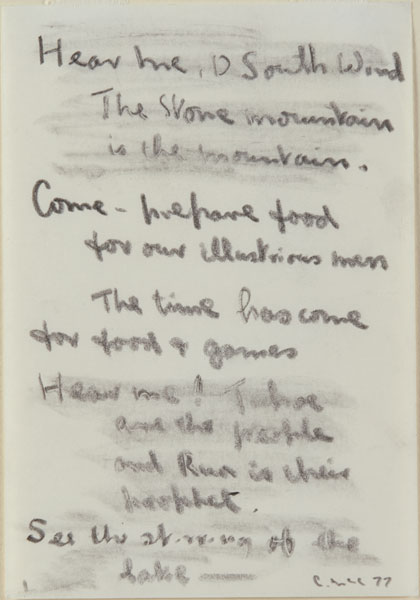 Hear me, O South Wind
The Stone mountain
is the mountain.
Come - prepare food
for our illustrious men
The time has come
for food & games
Hear me! Tuhoe
are the people
and Rua is their
prophet.
See the of the
lake —
C. McC 77